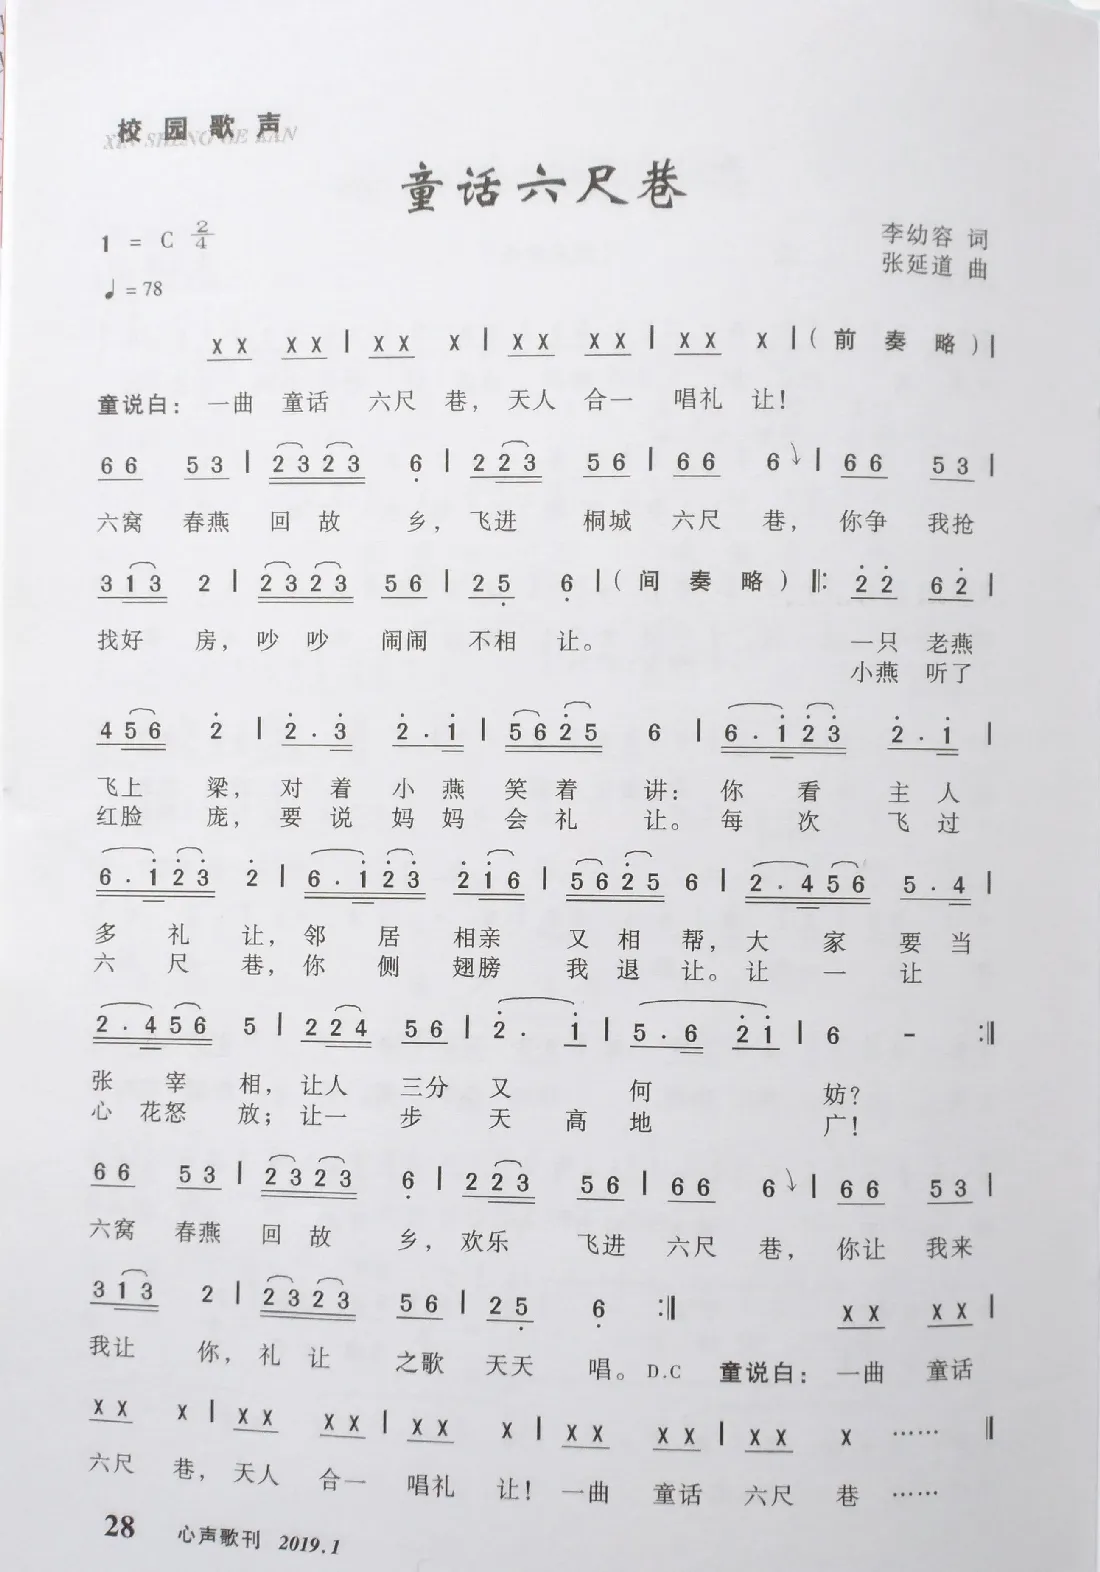 校园歌声
XIN SHENG GE KAN
童话六尺巷
1 = C 2/4
李幼容 词
张延道 曲
♩= 78
X X X X | X X X | X X X X | X X X | (前奏略) |
童说白：一曲 童话 六尺 巷，天人 合一 唱礼 让！
6 6 5 3 | 2 3 2 3 6 | 2 2 3 5 6 | 6 6 6 | 6 6 5 3 |
六窝 春燕 回 故 乡，飞进 桐城 六尺 巷，你争 我抢
3 1 3 2 | 2 3 2 3 5 6 | 2 5 6 | (间奏略) ‖: 2 2 6 2 |
找好 房，吵 吵 闹闹 不相 让。 一只 老燕
小燕 听了
4 5 6 2 | 2 . 3 2 . 1 | 5 6 2 5 6 | 6 . 1 2 3 2 . 1 |
飞上 梁，对 着 小 燕 笑 着 讲：你 看 主 人
红脸 庞，要 说 妈 妈 会 礼 让。每 次 飞 过
6 . 1 2 3 2 | 6 . 1 2 3 2 1 6 | 5 6 2 5 6 | 2 . 4 5 6 5 . 4 |
多 礼 让，邻 居 相亲 又 相 帮，大 家 要 当
六 尺 巷，你 侧 翅膀 我 退 让。让 一 让
2 . 4 5 6 5 | 2 2 4 5 6 | 2 . 1 | 5 . 6 2 1 | 6 - :‖
张 宰 相，让人 三分 又 何 妨？
心 花怒 放；让一 步 天 高 地 广！
6 6 5 3 | 2 3 2 3 6 | 2 2 3 5 6 | 6 6 6 | 6 6 5 3 |
六窝 春燕 回 故 乡，欢乐 飞进 六尺 巷，你让 我来
3 1 3 2 | 2 3 2 3 5 6 | 2 5 6 :‖ X X X X |
我让 你，礼 让 之歌 天天 唱。D.C 童说白：一曲 童话
X X X | X X X X | X X X | X X X X | X X X …… ‖
六尺 巷，天人 合一 唱礼 让！一曲 童话 六尺 巷 ……
28 心声歌刊 2019.1